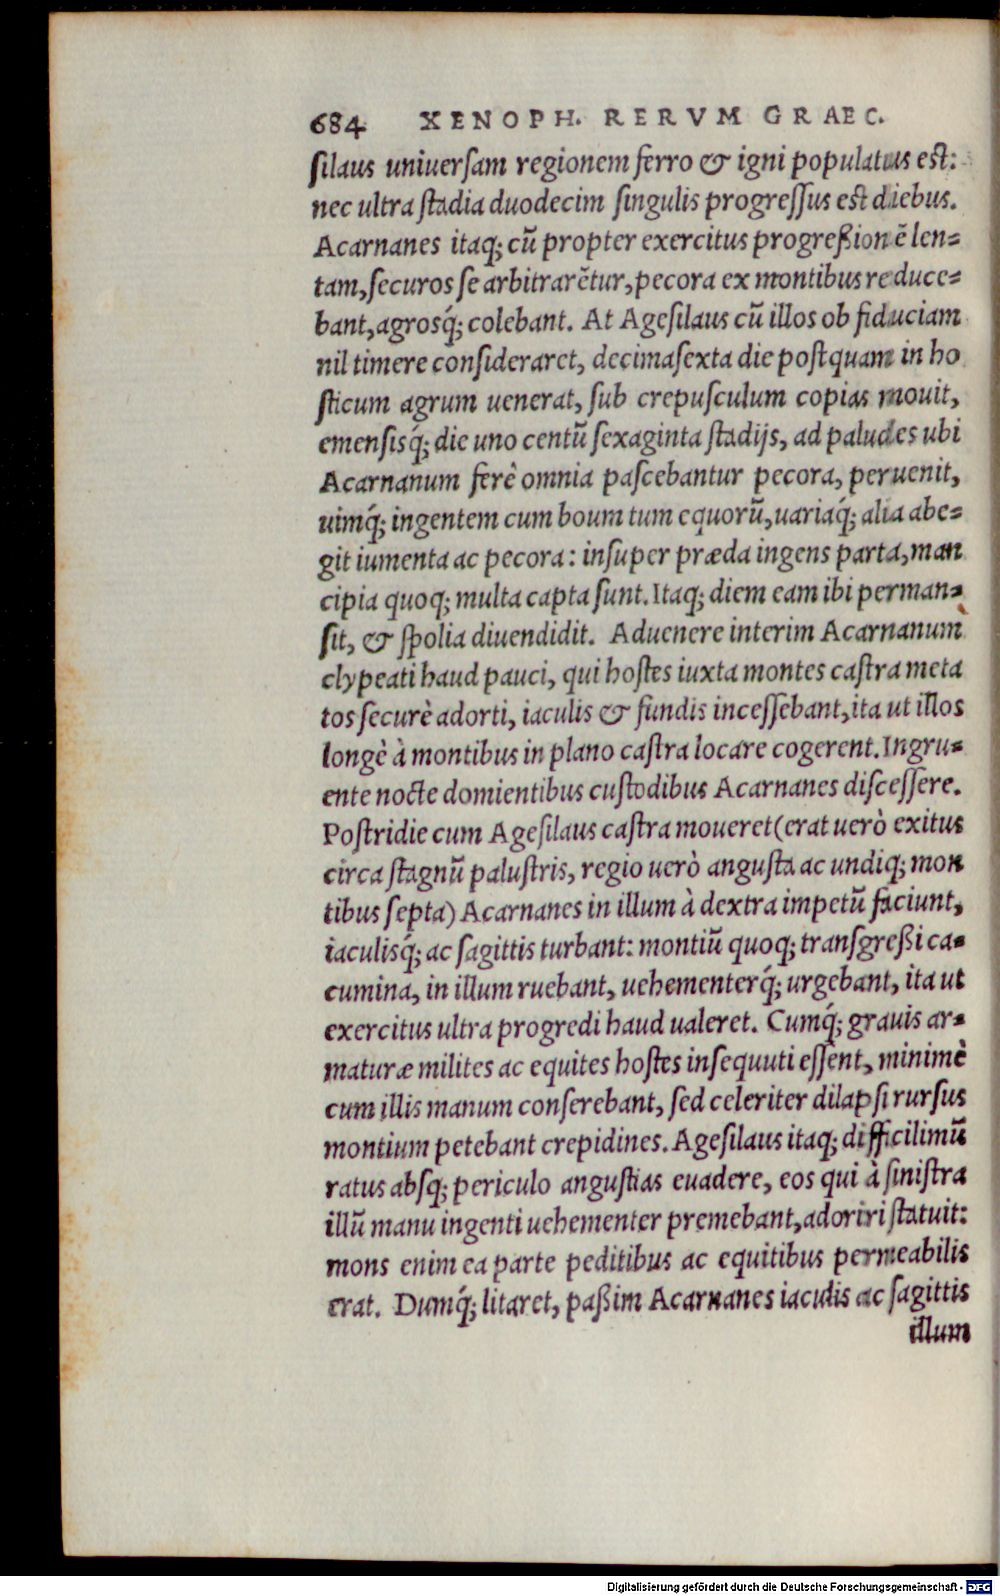 684 XENOPH. RERVM GRAEC.
ſilaus uniuerſam regionem ferro & igni populatus est:
nec ultra ſtadia duodecim ſingulis progreſſus est diebus.
Acarnanes itaq; cũ propter exercitus progreßionẽ len-
tam, ſecuros ſe arbitrarẽtur, pecora ex montibus reduce-
bant, agrosq́; colebant. At Ageſilaus cũ illos ob fiduciam
nil timere conſideraret, decimaſexta die poſtquam in ho
ſticum agrum uenerat, ſub crepuſculum copias mouit,
emenſisq́; die uno centũ ſexaginta ſtadijs, ad paludes ubi
Acarnanum ferè omnia paſcebantur pecora, peruenit,
uimq́; ingentem cum boum tum equorũ, uariaq́; alia abe-
git iumenta ac pecora: inſuper præda ingens parta, man
cipia quoq; multa capta ſunt. Itaq; diem eam ibi perman-
ſit, & ſpolia diuendidit. Aduenere interim Acarnanum
clypeati haud pauci, qui hoſtes iuxta montes caſtra meta
tos ſecurè adorti, iaculis & fundis inceſſebant, ita ut illos
longè à montibus in plano caſtra locare cogerent. Ingru-
ente nocte domientibus cuſtodibus Acarnanes diſceſſere.
Poſtridie cum Ageſilaus caſtra moueret (erat uerò exitus
circa ſtagnũ paluſtris, regio uerò anguſta ac undiq; mon
tibus ſepta) Acarnanes in illum à dextra impetũ faciunt,
iaculisq́; ac ſagittis turbant: montiũ quoq; tranſgreßi ca-
cumina, in illum ruebant, uehementerq́; urgebant, ita ut
exercitus ultra progredi haud ualeret. Cumq́; grauis ar-
maturæ milites ac equites hoſtes inſequuti eſſent, minimè
cum illis manum conſerebant, ſed celeriter dilapſi rurſus
montium petebant crepidines. Ageſilaus itaq; difficilimũ
ratus abſq; periculo anguſtias euadere, eos qui à ſiniſtra
illũ manu ingenti uehementer premebant, adoriri ſtatuit:
mons enim ea parte peditibus ac equitibus permeabilis
erat. Dumq́; litaret, paßim Acarnanes iaculis ac ſagittis
illum
Digitalisierung gefördert durch die Deutsche Forschungsgemeinschaft - DFG